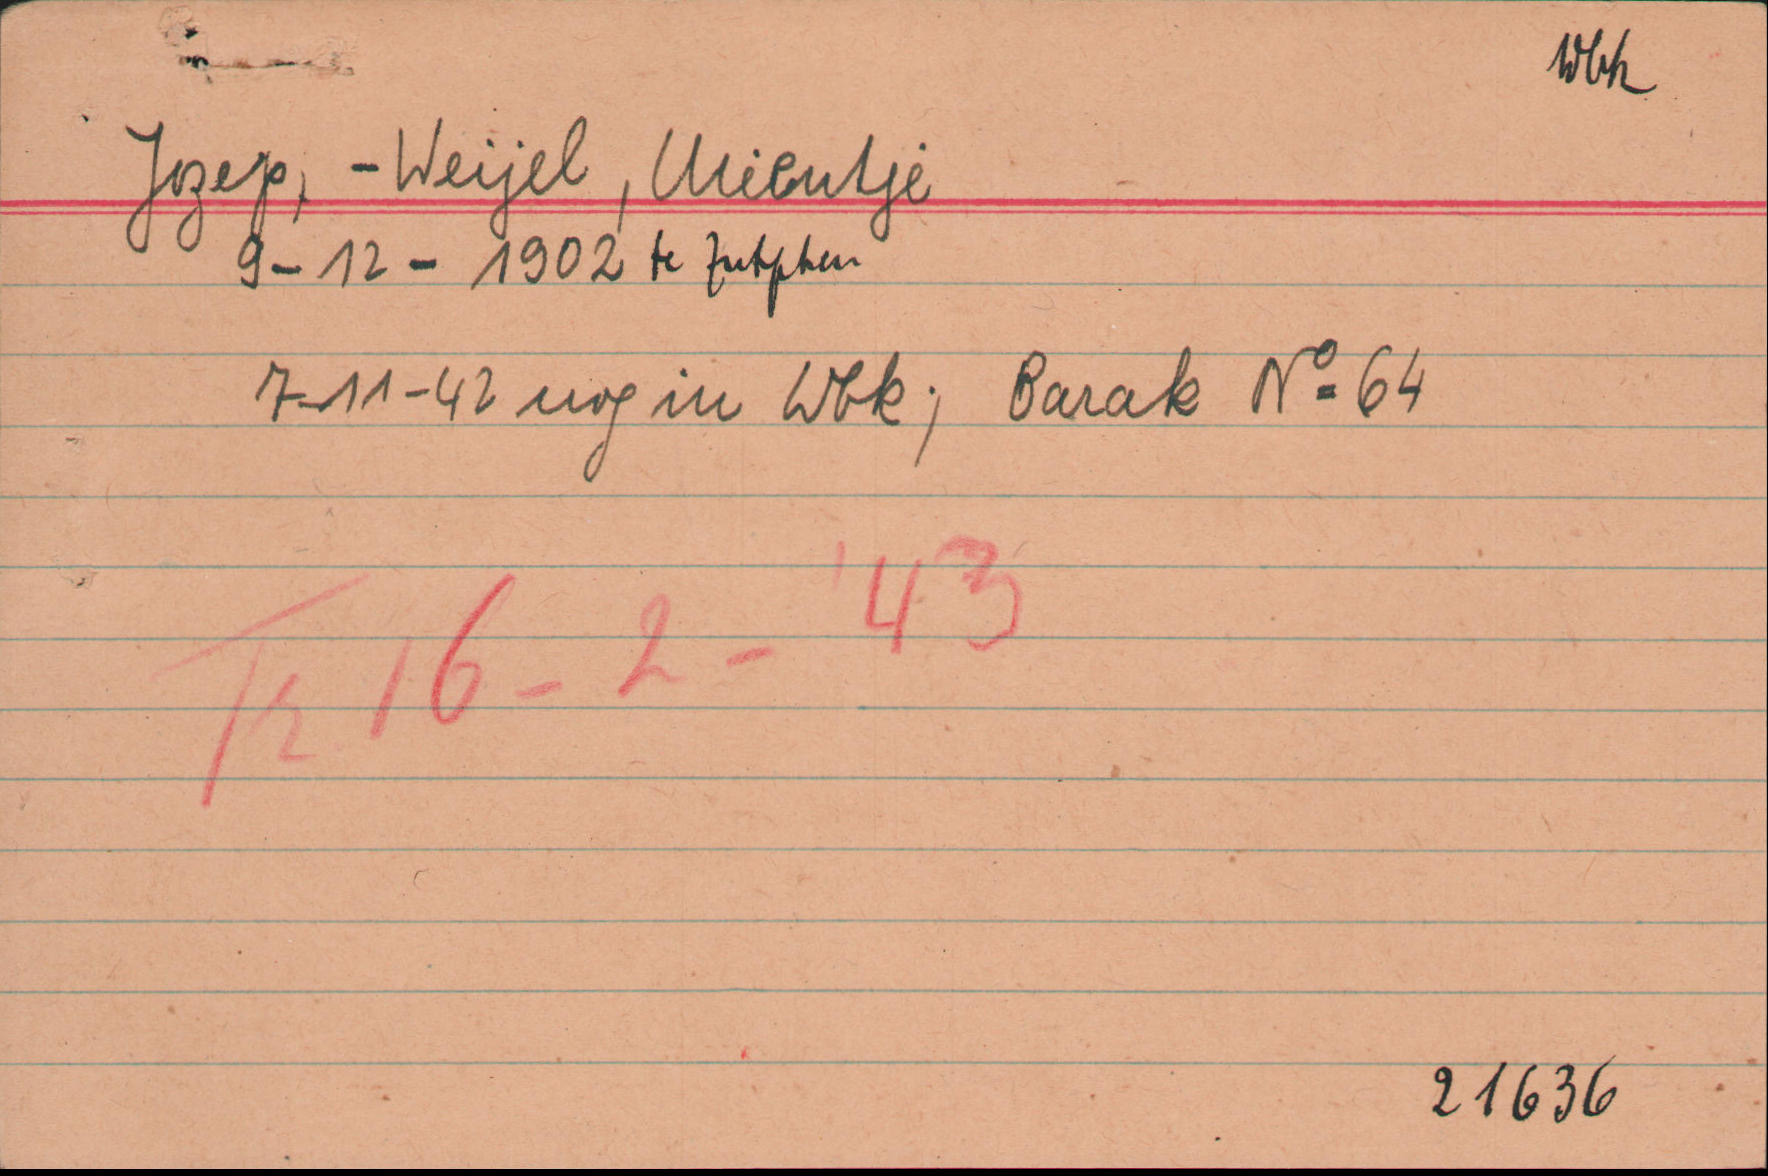 Wbk
Jozep, - Weijel, Mientje
9-12-1902 te Zutphen
7-11-42 nog in Wbk; Barak Nº 64
Tr 16-2-'43
21636